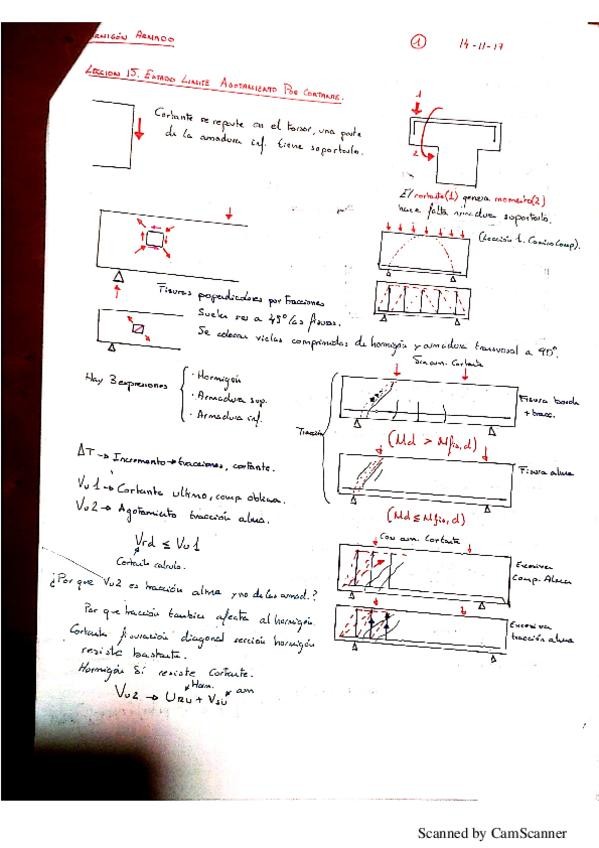 HORMIGÓN ARMADO
1
14-11-17
LECCION 15. ESTADO LIMITE AGOTAMIENTO POR CORTANTE.
Cortante se reparte en el torsor, una parte
de la armadura inf. tiene soportarlo.
1
2
El cortante(1) genera momento(2)
hace falta armadura soportarlo.
(Lección 1.
Fisuras perpendiculares por tracciones
Suelen ser a 45º las fisuras.
Se colocan vielas comprimidas de hormigón y armadura transversal a 90º.
Sin arm. Cortante
Hay 3 expresiones
· Hormigón
· Armadura sup.
· Armadura inf.
Tracción
Fisura borde
+ tracc.
(Md > Mfis,d)
Fisura alma
(Md ≤ Mfis,d)
ΔT → Incremento → tracciones, cortante.
Vu1 → Cortante ultimo, comp oblicua.
Vu2 → Agotamiento tracción alma.
Vrd ≤ Vu1
Cortante calculo.
Con arm. Cortante
Excesiva
Comp. Alma
¿Por que Vu2 es tracción alma y no de las armad.?
Por que tracción tambien afecta al hormigón.
Cortante fisuración diagonal sección hormigón
resiste bastante.
Hormigón Sí resiste Cortante.
Excesiva
tracción alma
Horm.
arm
Vu2 → Ucu + Vsu
Scanned by CamScanner